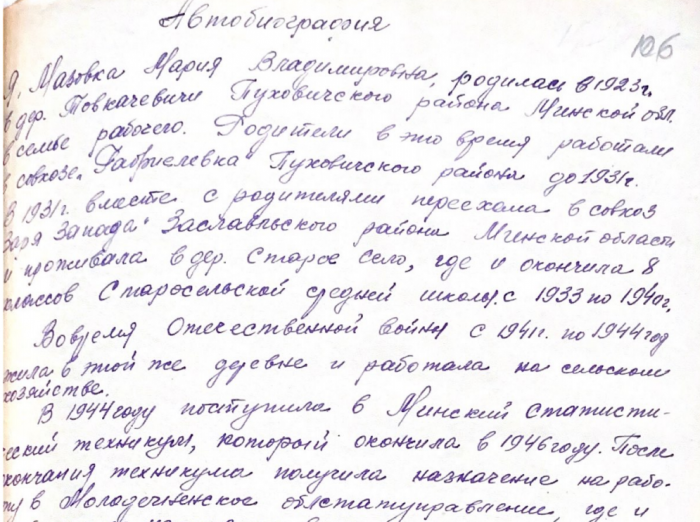 Автобиография
106
Я, Мазовка Мария Владимировна, родилась в 1923г.
в дер. Товкачевичи Пуховичского района Минской обл.
в семье рабочего. Родители в это время работали
в совхозе „Габриелевка" Пуховичского района до 1931г.
В 1931г. вместе с родителями переехала в совхоз
Заря Запада" Заславльского района Минской области
и проживала в дер. Старое Село, где и окончила 8
классов Старосельской средней школы с 1933 по 1940г.
Вовремя Отечественной войны с 1941г. по 1944год
жила в этой же деревне и работала на сельском
хозяйстве.
В 1944году поступила в Минский статисти-
ческий техникум, который окончила в 1946году. После
окончания техникума получила назначение на рабо-
ту в Молодечненское облстатуправление, где и